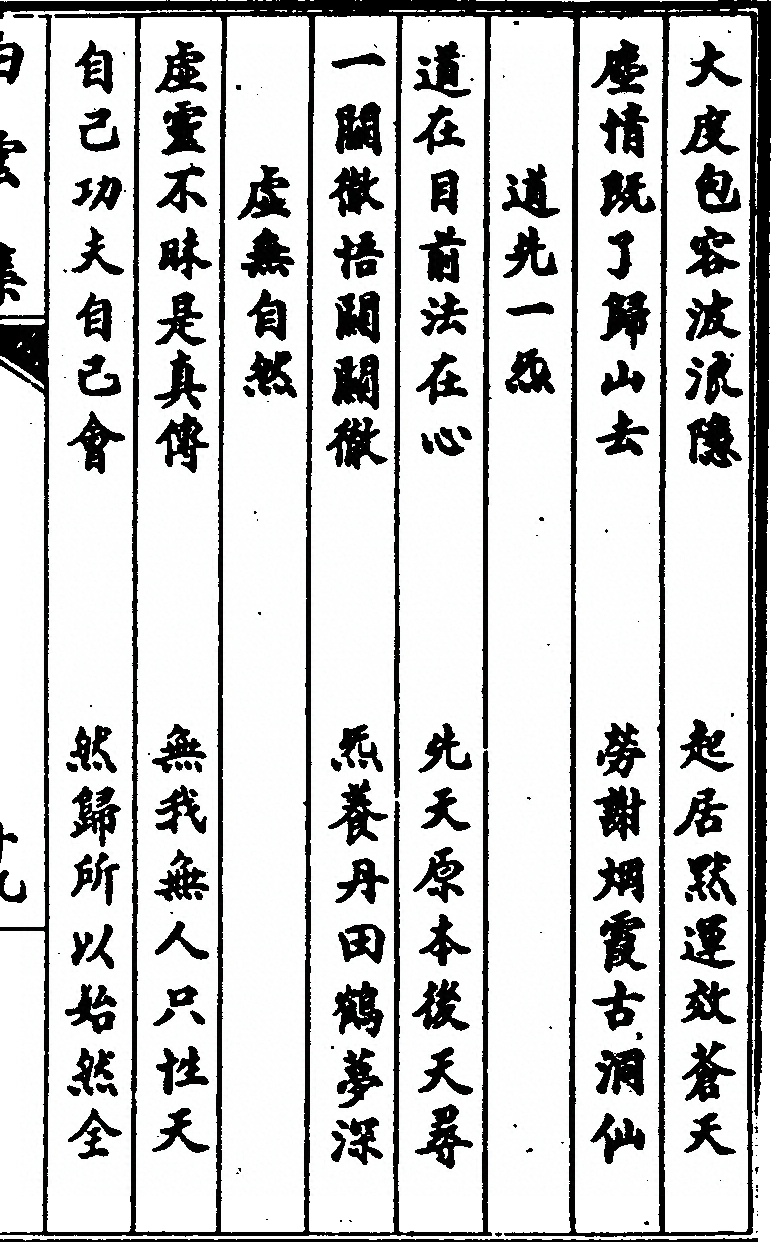 大度包容波浪隱　起居默運效蒼天
塵情既了歸山去　勞謝烟霞古洞仙
道先一炁
道在目前法在心　先天原本後天尋
一關徹悟關關徹　炁養丹田鶴夢深
虛無自然
虛靈不昧是真傳　無我無人只性天
自己功夫自己會　然歸所以始然全
白雲集　十九